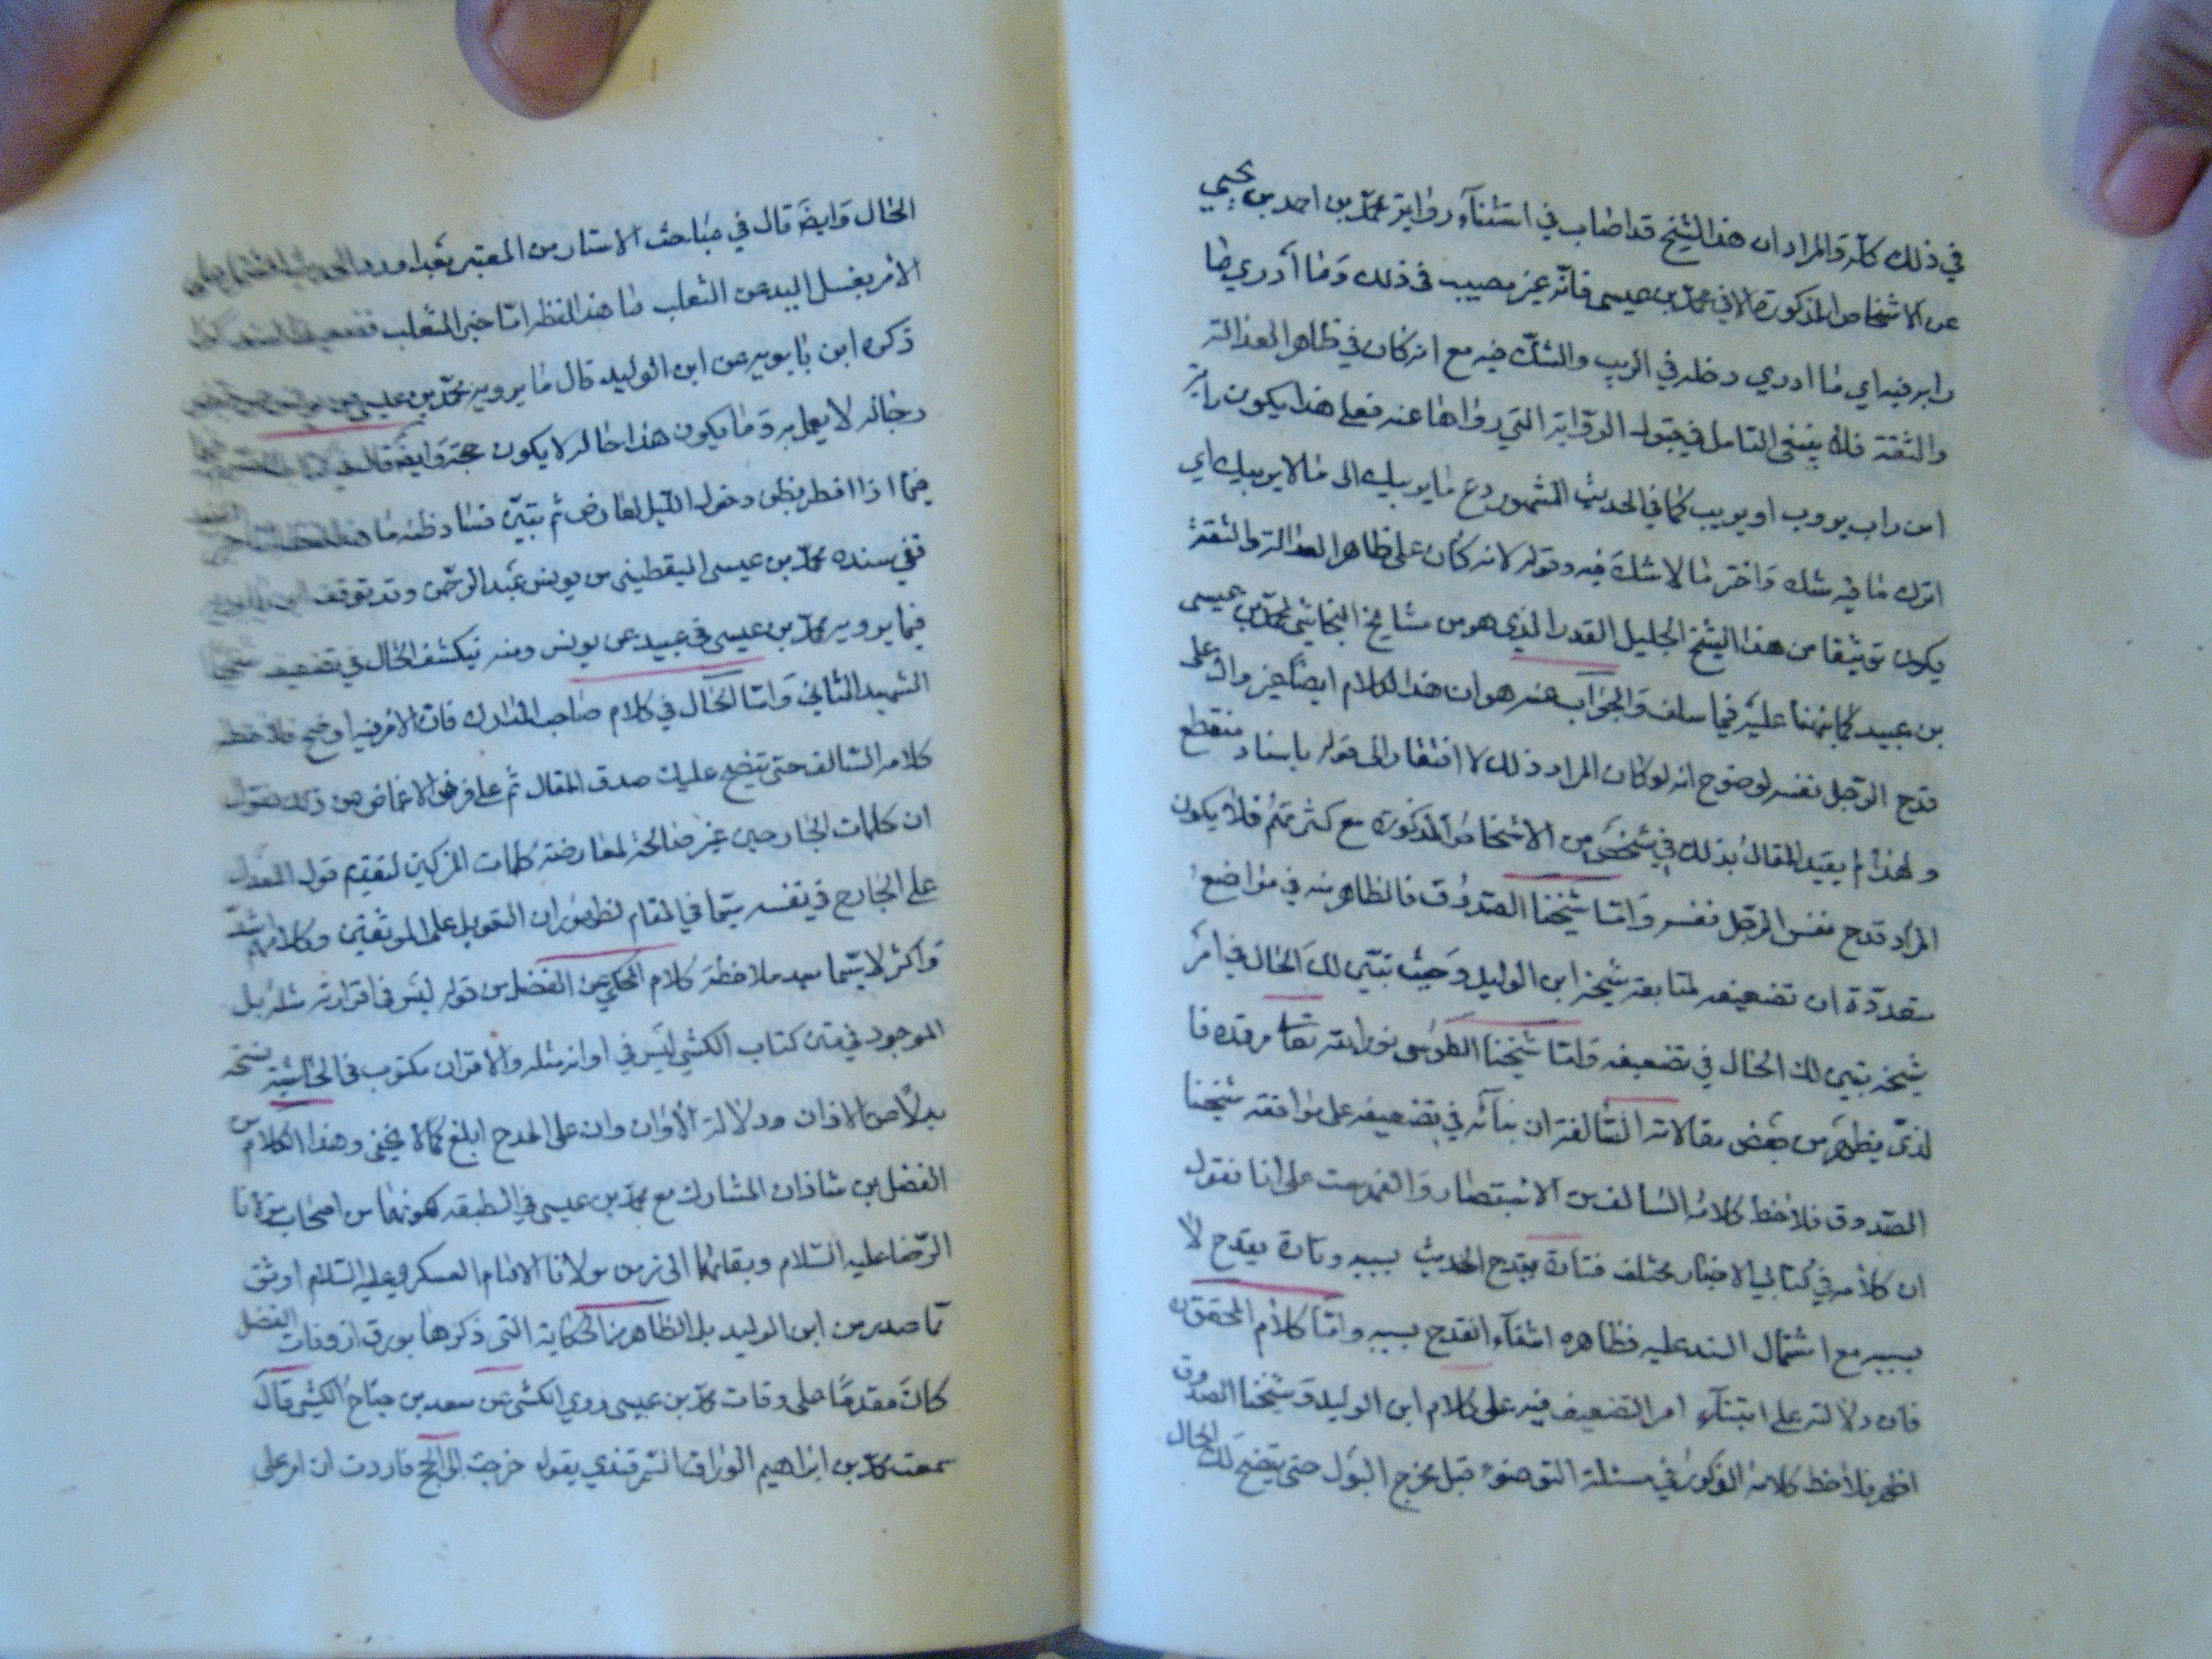 في ذلك كله والمراد ان هذا الشيخ قد اصاب في استثناء رواية محمد بن احمد بن يحيى
عن الاشخاص المذكورة الا في محمد بن عيسى فانه غير مصيب في ذلك وما أدري ما
رابه فيه اي ما ادري دخله في الريب والشك فيه مع انه كان في ظاهر العدالة
والثقة فلا ينبغي التامل في قبول الرواية التي رواها عنه فعلى هذا يكون رابه
من راب يروب او يريب كما في الحديث المشهور دع ما يريبك الى ما لا يريبك اي
اترك ما فيه شك واختر ما لا شك فيه وقوله لانه كان على ظاهر العدالة والثقة
يكون توثيقا من هذا الشيخ الجليل القدر الذي هو من مشايخ النجاشي لمحمد بن عيسى
بن عبيد كما نبهنا عليه فيما سلف والجواب عنه هو ان هذا الكلام ايضا غير دال على
قدح الرجل نفسه لوضوح انه لو كان المراد ذلك لا افتقار الى قوله باسناد منقطع
ولهذا لم يقيد المقال بذلك في شخص من الاشخاص المذكورة مع كثرتهم فلا يكون
المراد قدح نفس الرجل نفسه واما شيخنا الصدوق فالظاهر منه في مواضع
متعددة ان تضعيفه لمتابعة شيخه ابن الوليد وحيث تبين لك الحال في امر
شيخه تبين لك الحال في تضعيفه واما شيخنا الطوسي نور الله تعالى مرقده فا
لذي يظهر من بعض مقالاته السالفة ان بنائه في تضعيفه على موافقة شيخنا
الصدوق فلاحظ كلامه السالف من الاستبصار والفهرست على انا نقول
ان كلامه في كتابي الاخبار مختلف فتارة يقدح الحديث بسببه وتارة يقدح لا
بسببه مع اشتمال السند عليه فظاهره انتفاء القدح بسببه واما كلام المحقق
فان دلالته على ابتناء امر التضعيف فيه على كلام ابن الوليد وشيخنا الصدوق
اظهر فلاحظ كلامه المذكور في مسئلة التوضوء قبل مخرج البول حتى يتضح لك الحال
الحال وايضا قال في مباحث الاسئار من المعتبر بعد اورد الحديث المشتمل على
الأمر بغسل اليد عن الثعلب ما هذا لفظه اما خبر الثعلب فضعيف السند
ذكره ابن بابويه عن ابن الوليد قال ما يرويه محمد بن عيسى عن يونس
رجاله لا يعمل به وما يكون هذا حاله لا يكون حجة وايضا قال في
فيما اذا افطر بظن دخول الليل لعارض ثم تبين فساد ظنه ما هذا
ففي سنده محمد بن عيسى اليقطيني عن يونس عبد الرحمن وقد توقف ابن بابويه
فيما يرويه محمد بن عيسى في عبيد عن يونس ومنه ينكشف الحال في تضعيف شيخنا
الشهيد الثاني واما الحال في كلام صاحب المدارك فان الأمر فيه أوضح فلاحظ
كلامه السالف حتى يتضح عليك صدق المقال ثم على فرض الاغماض عن ذلك نقول
ان كلمات الجارحين غير صالحة لمعارضة كلمات المزكين لتقديم قول المعدل
على الجارح في نفسه سيما في المقام لظهور ان التعويل على الموثقين وكلامهم اشد
واكثر لا سيما بعد ملاحظة كلام المحكي عن الفضل من قوله ليس في اقرانه مثله بل
الموجود في متن كتاب الكشي ليس في اوانه مثله والاقران مكتوب في الحاشية نسخة
بدلا من الاوان ودلالة الأوان وان على المدح ابلغ كما لا يخفى وهذا الكلام من
الفضل بن شاذان المشارك مع محمد بن عيسى في الطبقة لكونهما من اصحاب مولانا
الرضا عليه السلام وبقائهما الى زمن مولانا الامام العسكري عليه السلام اوثق
مما صدر من ابن الوليد بل الظاهر من الحكاية التي ذكرها بورق ان وفات الفضل
كان مقدما على وفات محمد بن عيسى روى الكشي عن سعد بن جناح الكشي قال
سمعت محمد بن ابراهيم الوراق السمرقندي يقول خرجت الى الحج فاردت ان امر على